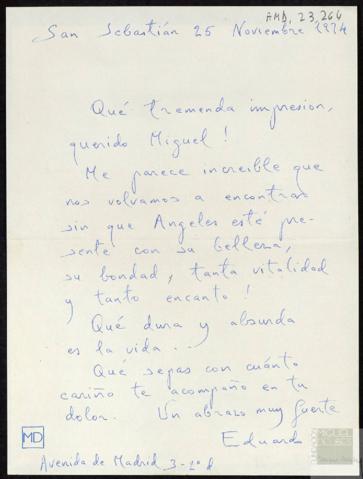 AMD, 23, 264
San Sebastián 25 Noviembre 1974
Qué tremenda impresion,
querido Miguel!
Me parece increible que
nos volvamos a encontrar
sin que Angeles esté pre-
sente con su belleza,
su bondad, tanta vitalidad
y tanto encanto!
Qué dura y absurda
es la vida.
Qué sepas con cuánto
cariño te acompaño en tu
dolor. Un abrazo muy fuerte
Eduardo
MD
Avenida de Madrid 3-2º d
MIGUEL
DELIBES